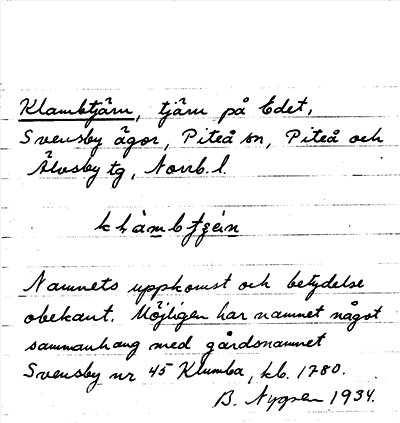 Klambtjärn, tjärn på Edet,
Svensby ägor, Piteå sn, Piteå och
Älvsby tg, Norrb. l.
Namnets uppkomst och betydelse
obekant. Möjligen har namnet något
sammanhang med gårdsnamnet
Svensby nr 45 Klumba, kb. 1780.
B. Nygren 1934.